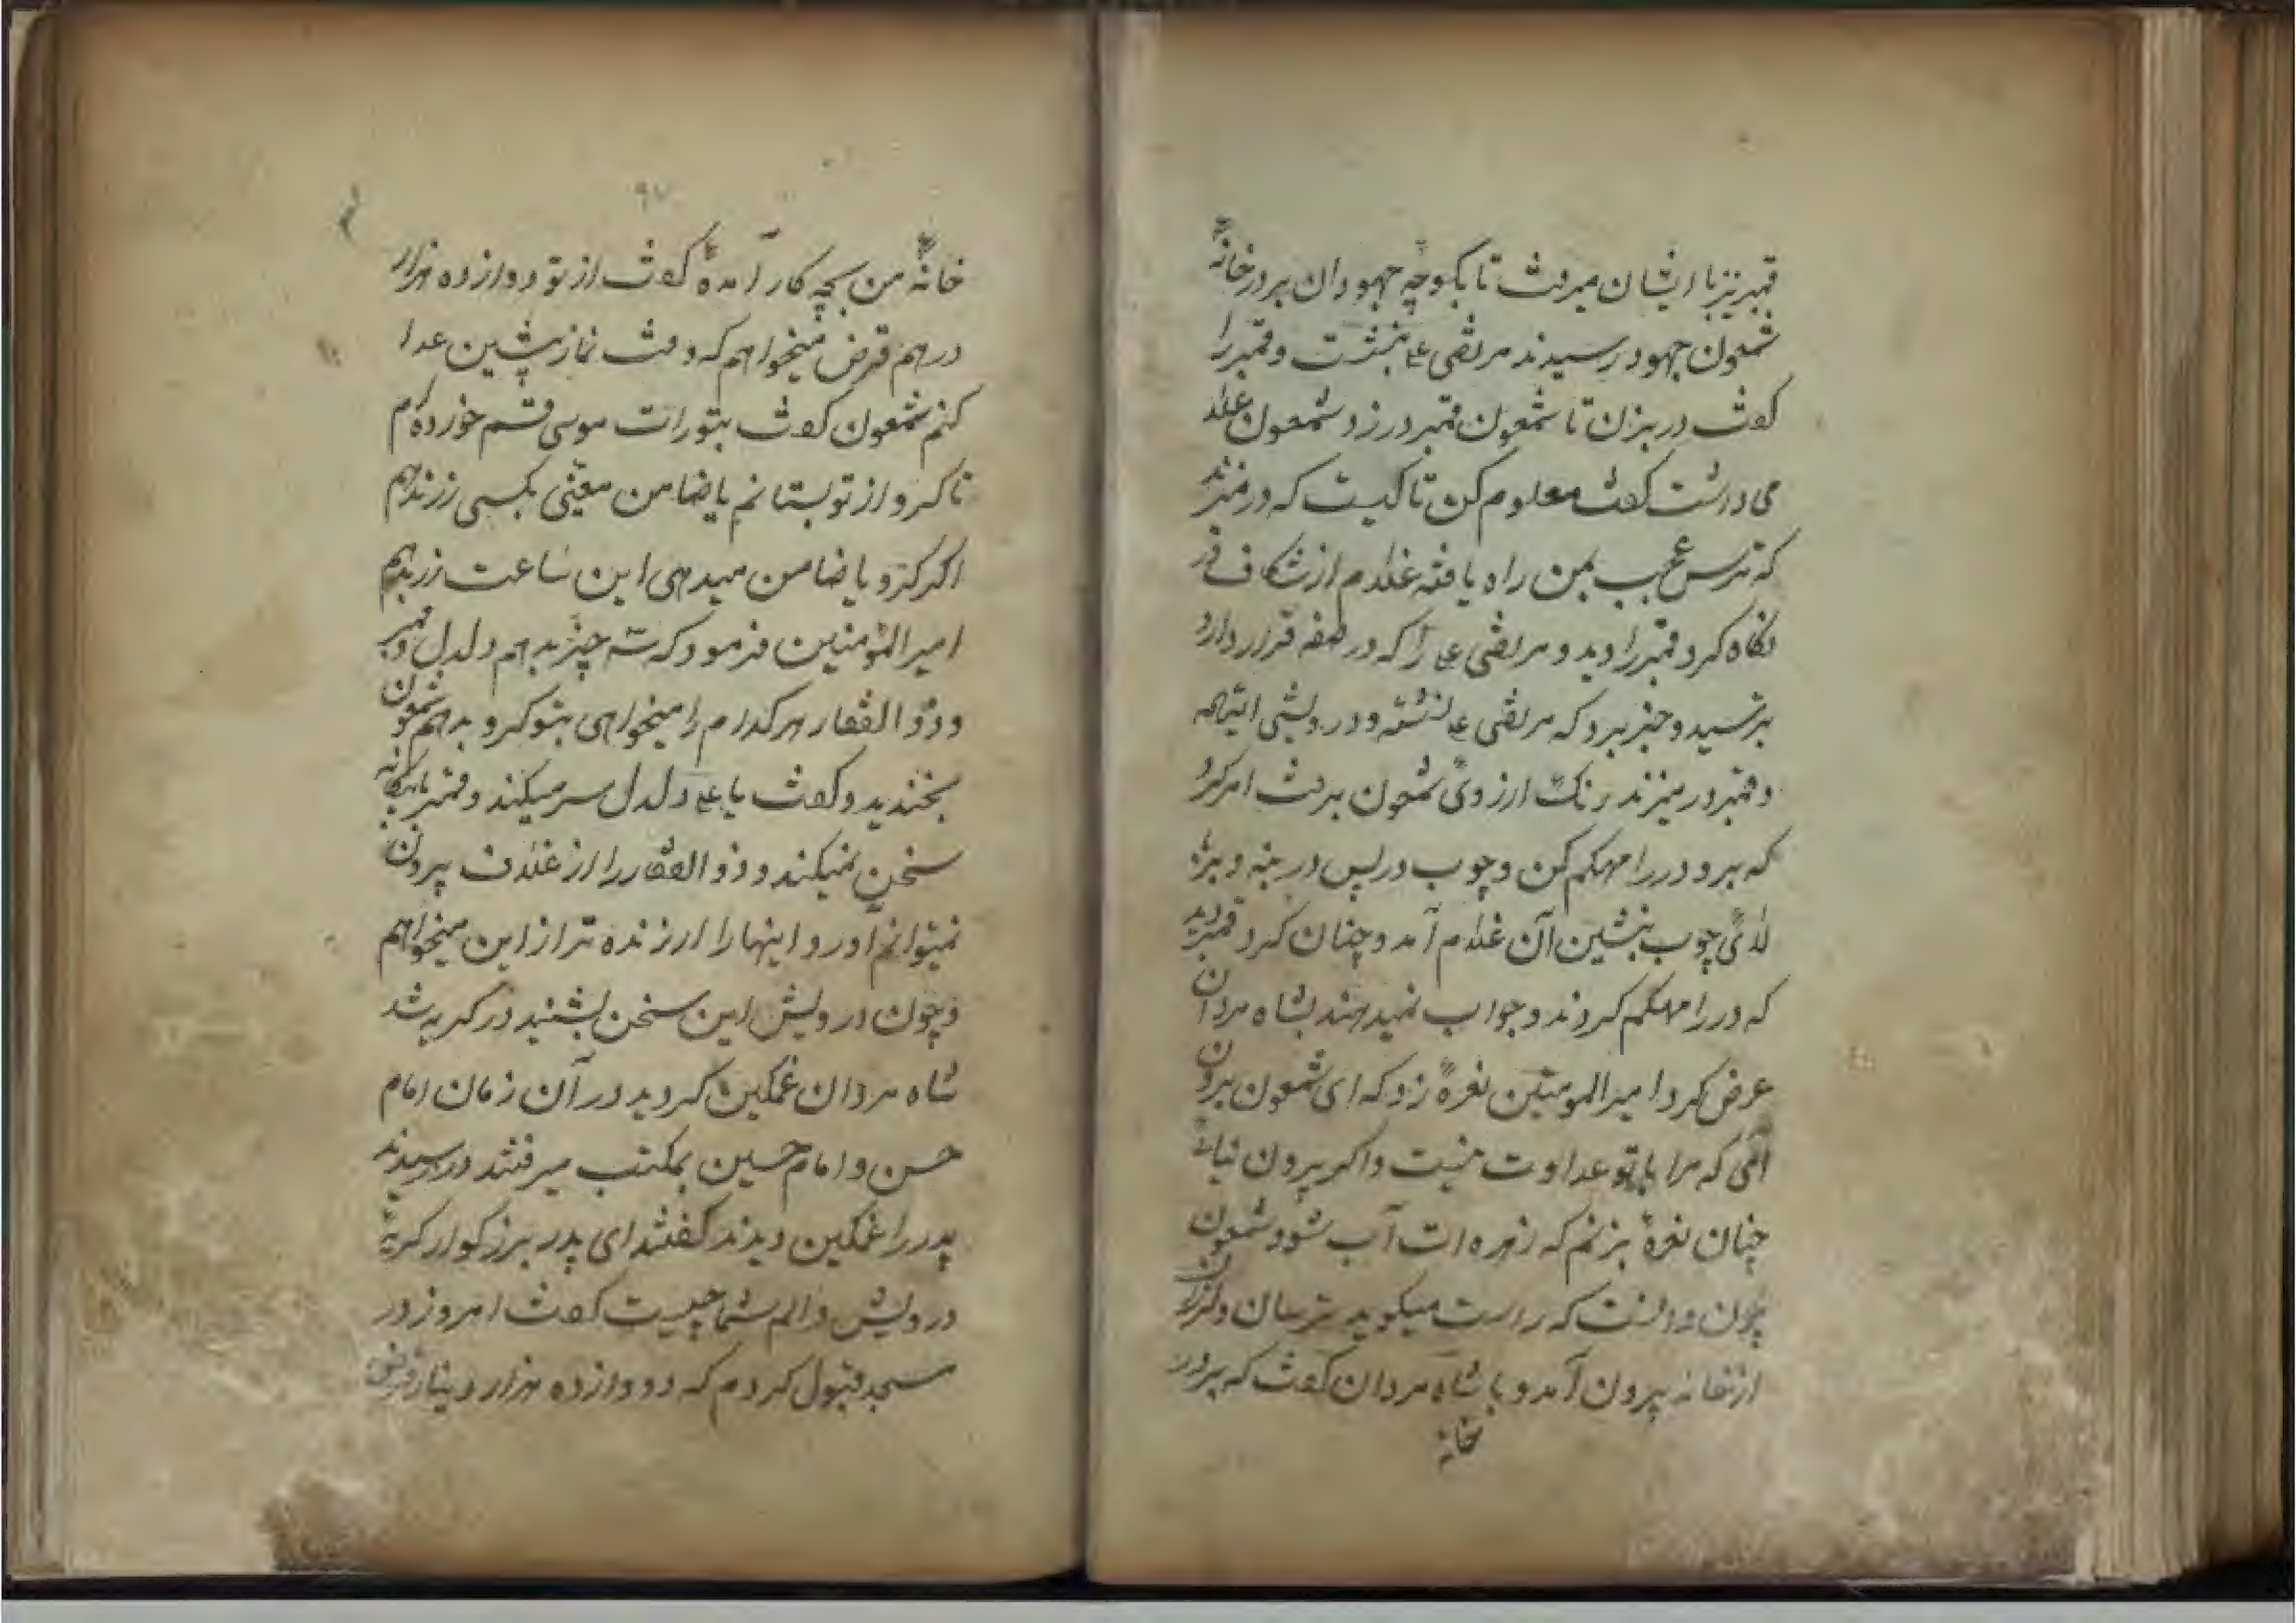 قمبر نیز با ایشان میرفت تا بکوچه جهودان بر در خانهٔ
شمعون جهود رسیدند مرتضی علی بنشست و قمبر را
گفت در بزن تا شمعون قمبر در زد و شمعون غلام
می داشت گفت معلوم کن تا کیست که در میزند
که ترس عجب بمن راه یافته غلام از شکاف در
نگاه کرد قمبر را دید و مرتضی علی را که در صفه قرار دارد
بترسید و خبر برد که مرتضی علی نشسته و درویشی
و قمبر در میزند رنک از روی شمعون برفت امر کرد
که برو در را مهکم کن و چوب در پس در بنه و
چوب بنشین آن غلام آمد و چنان کرد قمبر دید
که در را مهکم کردند و جواب نمیدهند بشاه مردان
عرض کرد امیر المومنین نعرهٔ زد که ای شمعون برون
آئی که مرا با تو عداوت نیست و اکر بیرون نیائی
چنان نعرهٔ بزنم که زهره ات آب شود شمعون
چون دانست که راست میکوید ترسان و لرزان
از خانه بیرون آمد و با شاه مردان گفت که بر در
خانهٔ
۹۷
خانهٔ من بچه کار آمدهٔ گفت از تو دوازده هزار
درهم قرض میخواهم که وقت نماز پشین عدا
کنم شمعون گفت بتورات موسی قسم خورده‌ام
تا کرو از تو بستانم یا ضامن معینی بکسی زر ندهم
اکر کرو یا ضامن میدهی این ساعت زر بدهم
امیر المؤمنین فرمود که سه چیز بدهم دلدل و قمبر
و ذو الفقار هر کدام را میخواهی بتو کرو بدهم شمعون
بخندید و گفت یا علی دلدل سر میکند و قمبر با بیکانه
سخن نمیکند و ذو الفقار را از غلاف بیرون
نمیتوانم آورد اینها را ارزنده تر از این میخواهم
و چون درویش این سخن بشنید در کریه شد
شاه مردان غمکین کردید در آن زمان امام
حسن و امام حسین بمکتب میرفتند در رسیدند
پدر را غمکین دیدند گفتند ای پدر بزرکوار کریهٔ
درویش و الم شما چیست گفت امروز در
مسجد قبول کردم که دوازده هزار دینار قرض